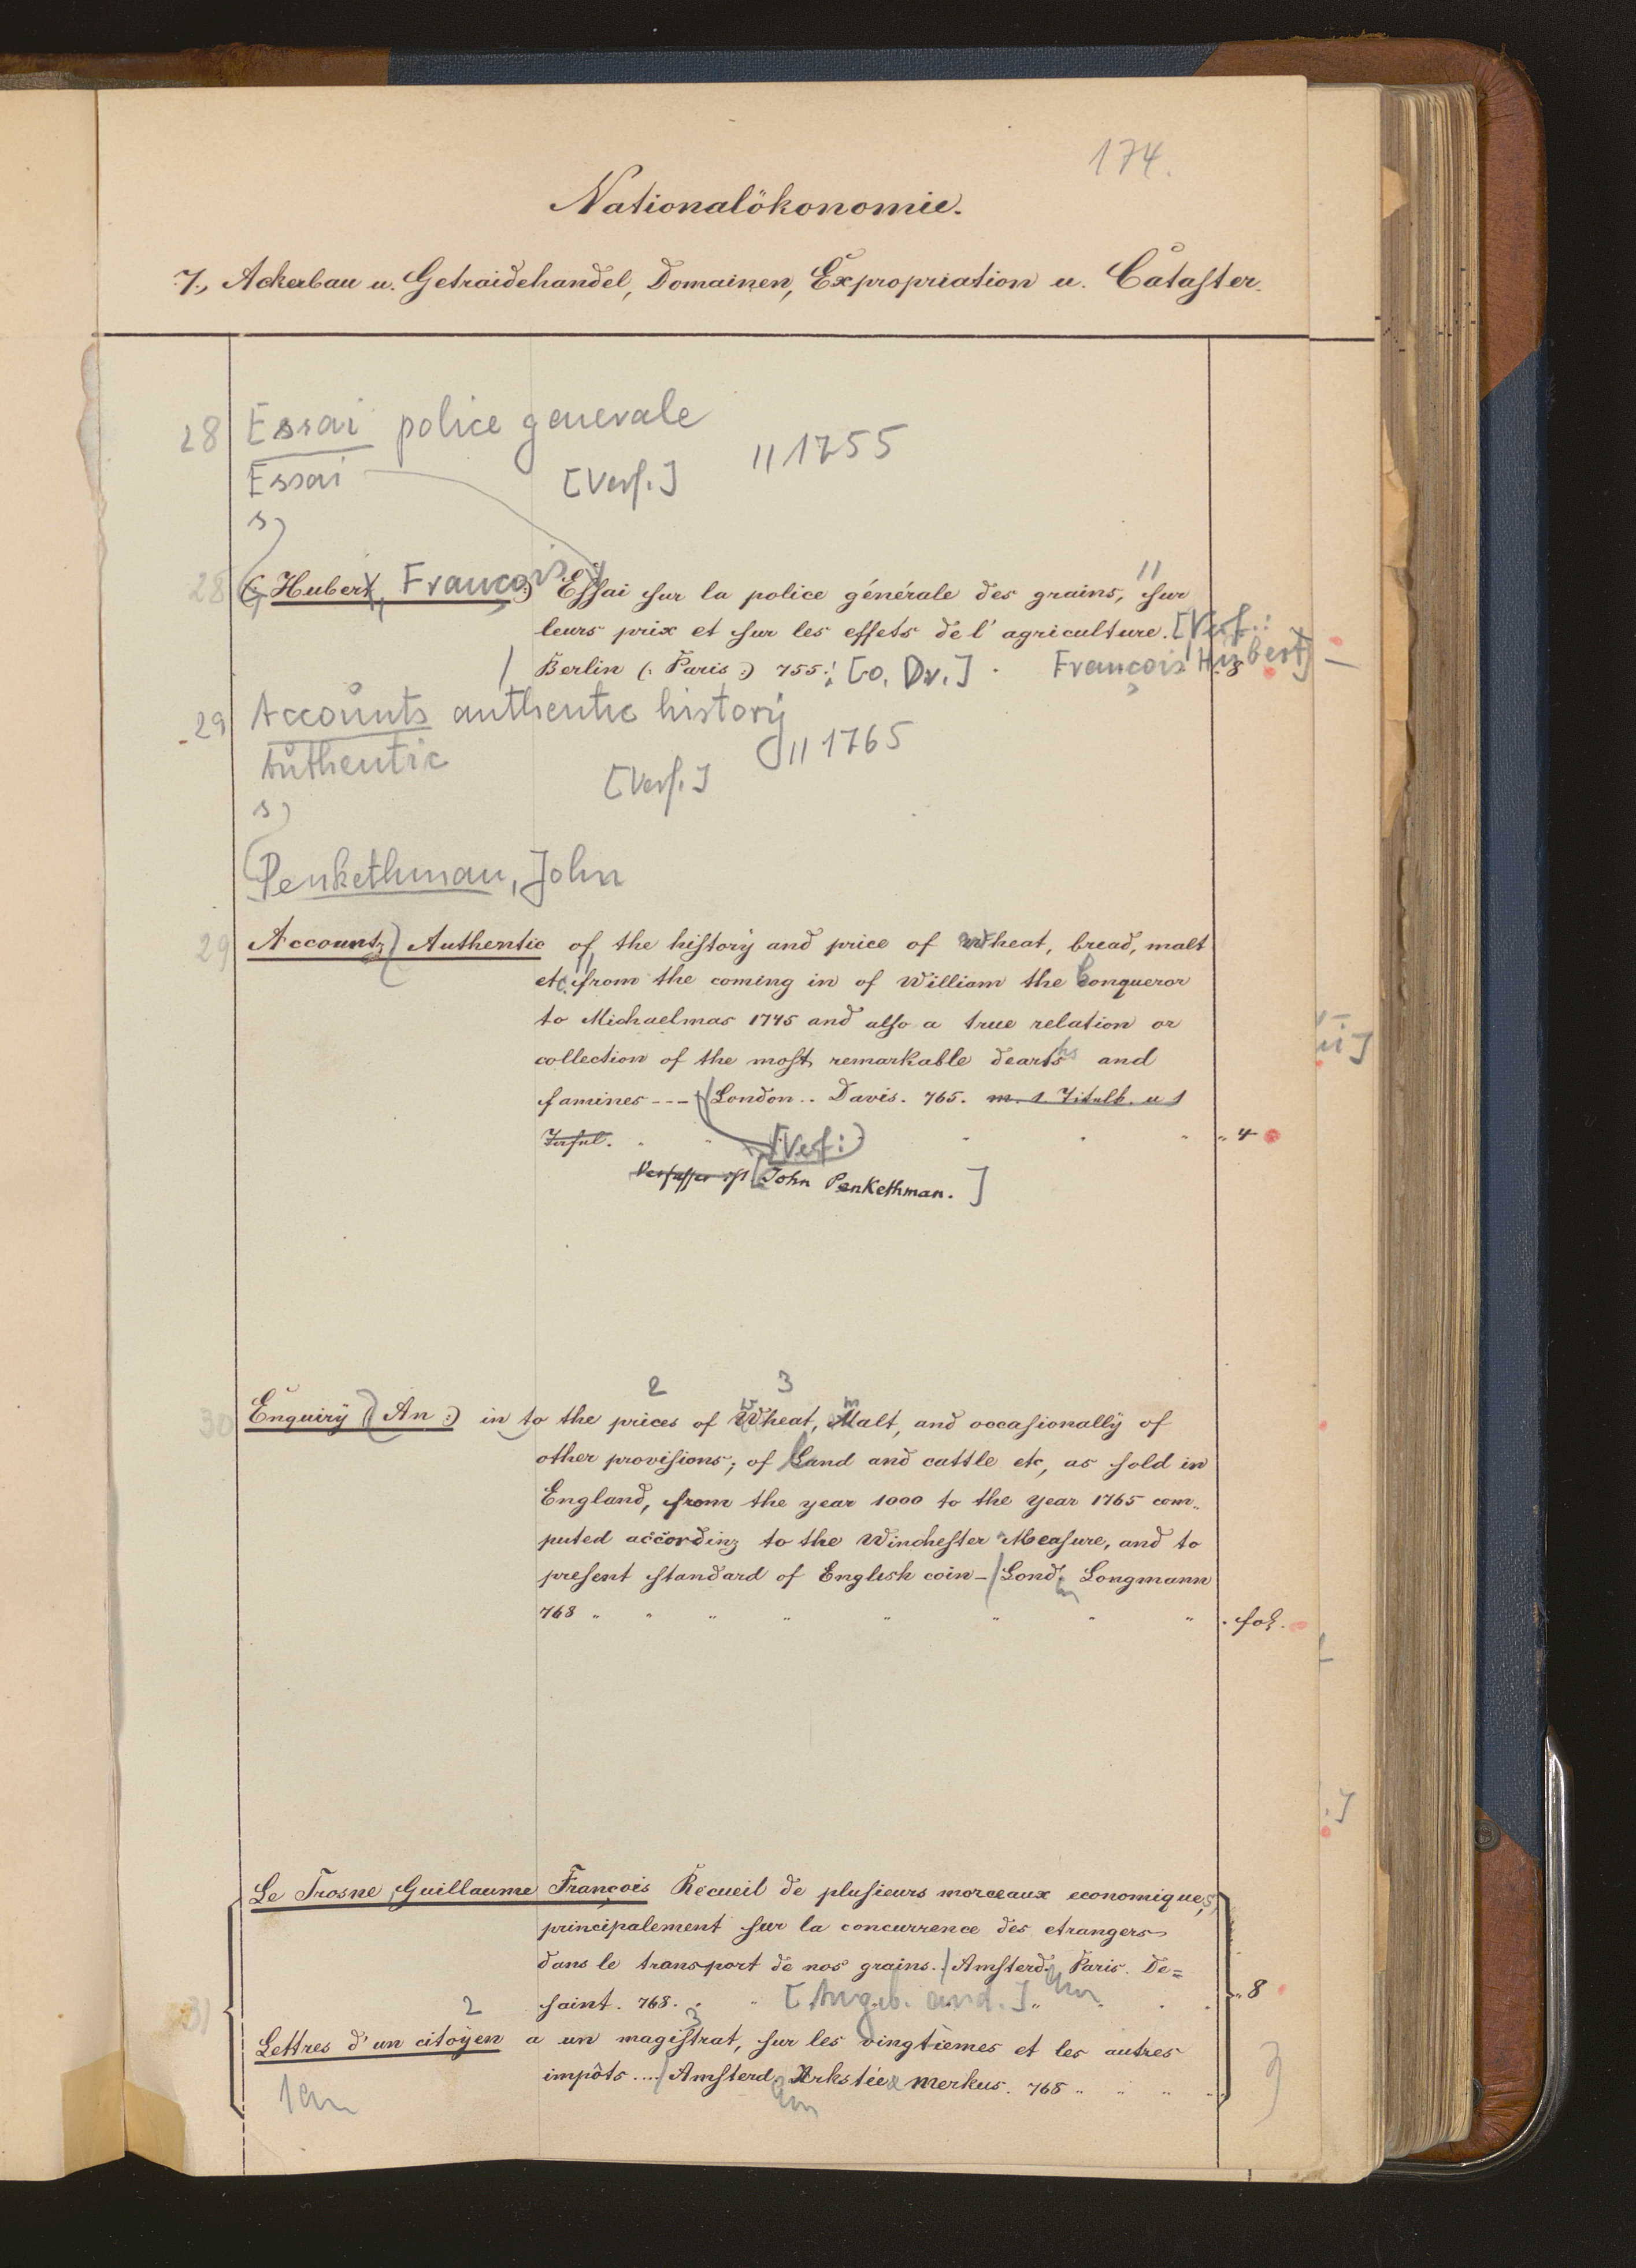 174.
Nationalökonomie.
7., Ackerbau u. Getraidehandel, Domainen, Expropriation u. Cataster.
28 Essai police generale
Essai [Verf.] || 1755
s)
28 (: Hubert, François :) Essai sur la police générale des grains, || sur
leurs prix et sur les effets de l'agriculture. [Verf.:
Berlin (: Paris :) 755.; [o. Dr.] François Hubert] 8
29 Accounts authentic history
Authentic [Verf.] || 1765
s)
Penkethman, John
29 Accounts) Authentic of the history and price of wheat, bread, malt
etc. || from the coming in of William the Conqueror
to Michaelmas 1745 and also a true relation or
collection of the most remarkable dearths and
famines --- / London .. Davis. 765. m. 1. Titulk. u 1
[Verf:] „ 4
Verfasser ist [John Penkethman.]
2 3
30 Enquiry (An :) in to the prices of Wheat, Malt, and occasionally of
other provisions; of Land and cattle etc, as sold in
England, from the year 1000 to the year 1765 com„
puted according to the Winchester Measure, and to
present standard of English coin – / Lond. Longmann
768 „ „ „ „ „ „ „ „ . fol.
Le Trosne, Guillaume François Recueil de plusieurs morceaux economiques,
principalement sur la concurrence des etrangers
dans le transport de nos grains. / Amsterd. Paris. De=
31 saint. 768. [Angeb. and.] „ 8
2 3
Lettres d'un citoyen a un magistrat, sur les vingtièmes et les autres
impôts .... / Amsterd. Arkstée & Merkus. 768 „ „ „